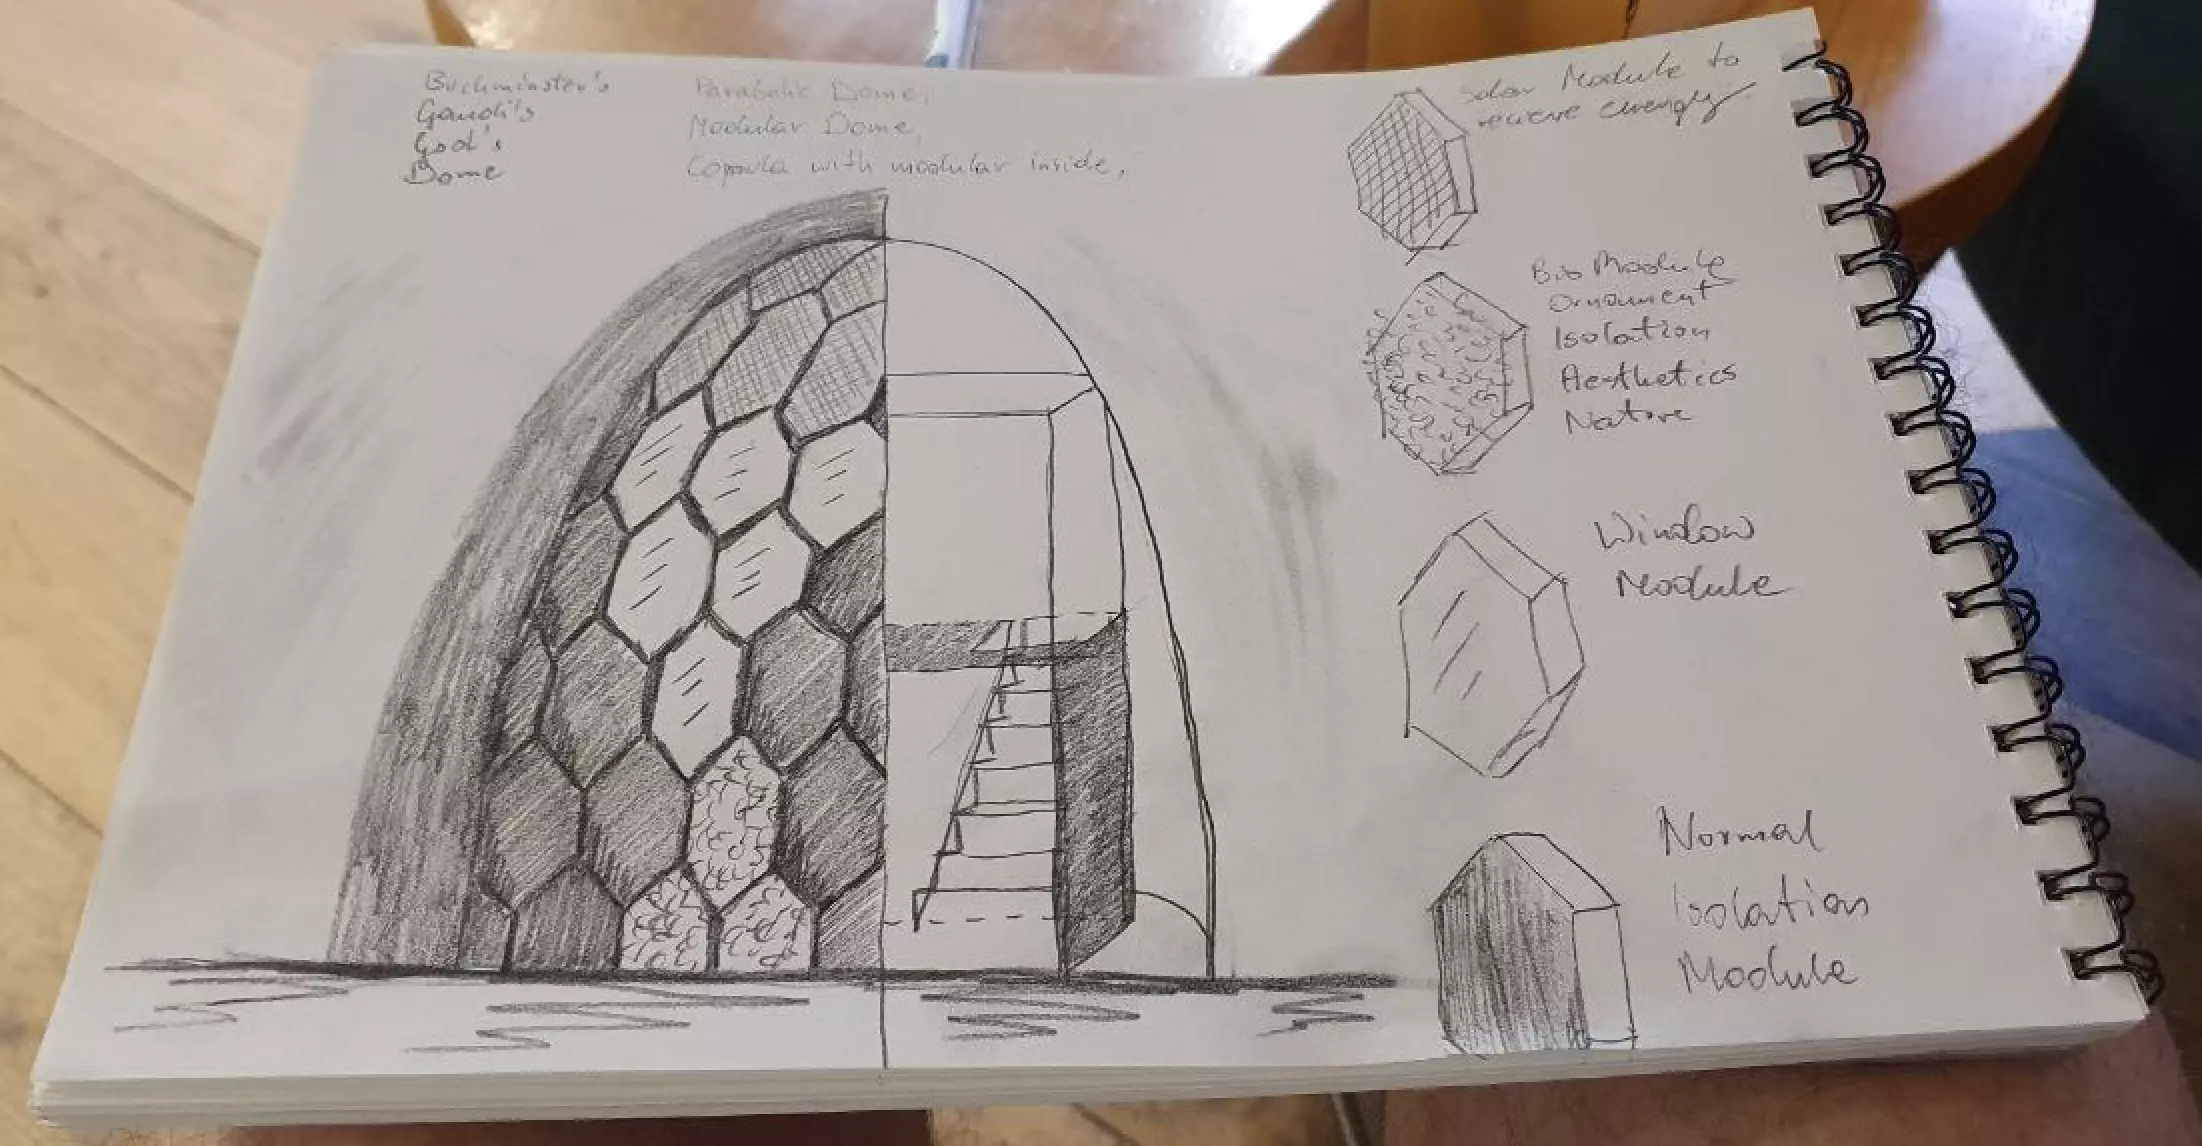 Buchminster's
Gaudi's
God's
Dome
Parabolic Dome,
Modular Dome,
Copoula with modular inside,
Solar Module to
recieve energly
Bio Module
Ornament
Isolation
Aesthetics
Nature
Window
Module
Normal
Isolation
Module